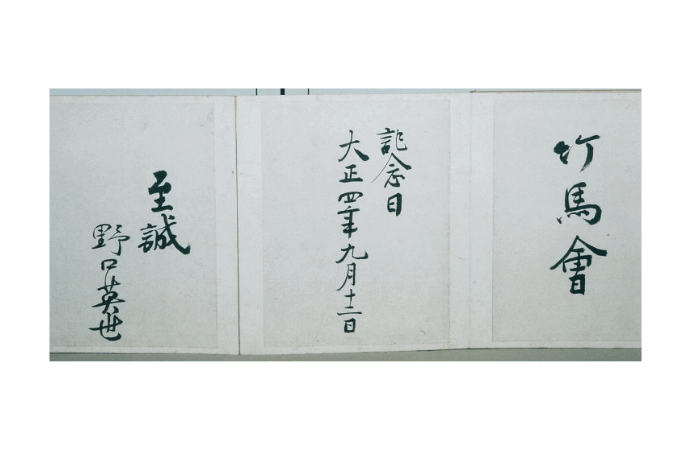 竹馬會
記念日
大正四年九月十二日
至誠
野口英世